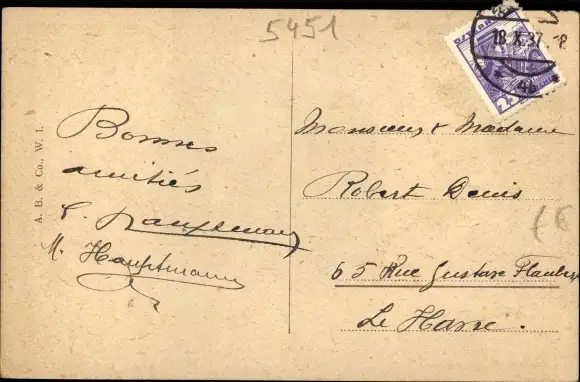 5451
18.X.37.
25
A. B. & Co., W. I.
Bonnes
amitiés
M. Hauptmann
Monsieur & Madame
Robert Denis
65 Rue Gustave Flaubert
Le Havre.